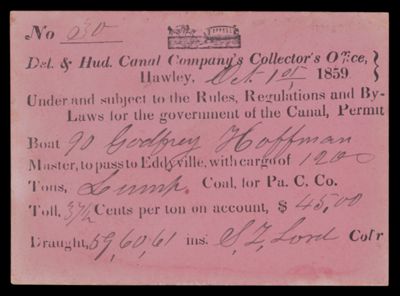 No 30
Del. & Hud. Canal Company's Collector's Office,
Hawley, Oct. 1st, 1859
Under and subject to the Rules, Regulations and By-
Laws for the government of the Canal, Permit
Boat 90 Godfrey Hoffman
Master, to pass to Eddyville, with cargo of 120
Tons, Lump. Coal, for Pa. C. Co.
Toll, 37½ Cents per ton on account, $ 45,00
Draught, 59, 60, 61 ins. S, Z, Lord Col'r